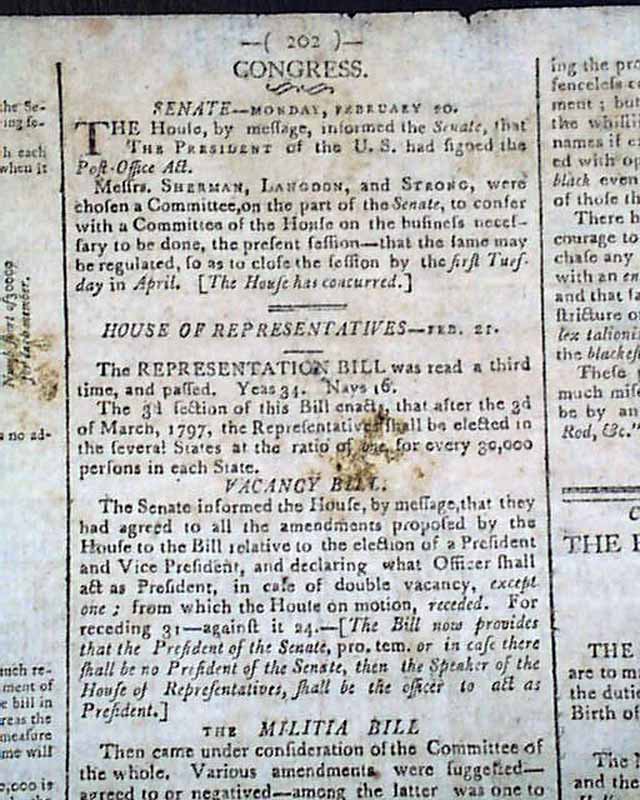 the Se-
ing ſe-
h each
when it
for each member.
a no ad-
uch re-
ment of
e bill in
reas the
meaſure
me will
0,000 is
—( 202 )—
CONGRESS.
SENATE—MONDAY, FEBRUARY 20.
THE Houſe, by meſſage, informed the Senate, that
THE PRESIDENT of the U. S. had ſigned the
Poſt-Office Act.
Meſſrs. SHERMAN, LANGDON, and STRONG, were
choſen a Committee, on the part of the Senate, to confer
with a Committee of the Houſe on the buſineſs neceſ-
ſary to be done, the preſent ſeſſion—that the ſame may
be regulated, ſo as to cloſe the ſeſſion by the firſt Tueſ-
day in April. [The Houſe has concurred.]
HOUSE OF REPRESENTATIVES—FEB. 21.
The REPRESENTATION BILL was read a third
time, and paſſed. Yeas 34. Nays 16.
The 3d ſection of this Bill enacts, that after the 3d
of March, 1797, the Repreſentatives ſhall be elected in
the ſeveral States at the ratio of one for every 30,000
perſons in each State.
VACANCY BILL.
The Senate informed the Houſe, by meſſage, that they
had agreed to all the amendments propoſed by the
Houſe to the Bill relative to the election of a Preſident
and Vice Preſident, and declaring what Officer ſhall
act as Preſident, in caſe of double vacancy, except
one; from which the Houſe on motion, receded. For
receding 31—againſt it 24.—[The Bill now provides
that the Preſident of the Senate, pro. tem. or in caſe there
ſhall be no Preſident of the Senate, then the Speaker of the
Houſe of Repreſentatives, ſhall be the officer to act as
Preſident.]
THE MILITIA BILL
Then came under conſideration of the Committee of
the whole. Various amendments were ſuggeſted—
agreed to or negatived—among the latter was one to
ing the pro
fenceleſs c
ment; bu
the whiſtli
names if e
ed with op
black even
of thoſe th
There h
courage to
chaſe any
with an en
and that ſa
ſtricture o
lex talioni
the blackeſ
Theſe
much miſe
be by an
Rod, &c."
C
THE
THE
are to ma
the dutie
Birth of
The N
and the